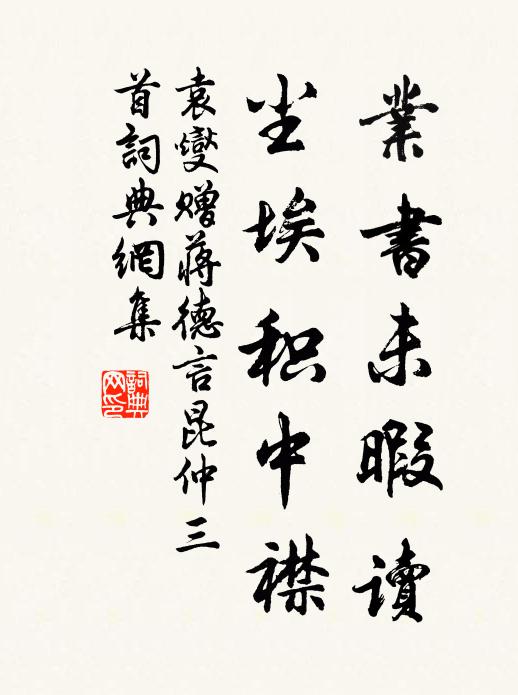 業書未暇讀
尘埃积中襟
袁燮赠蔣德言昆仲三
首詞典網集
詞典
网印